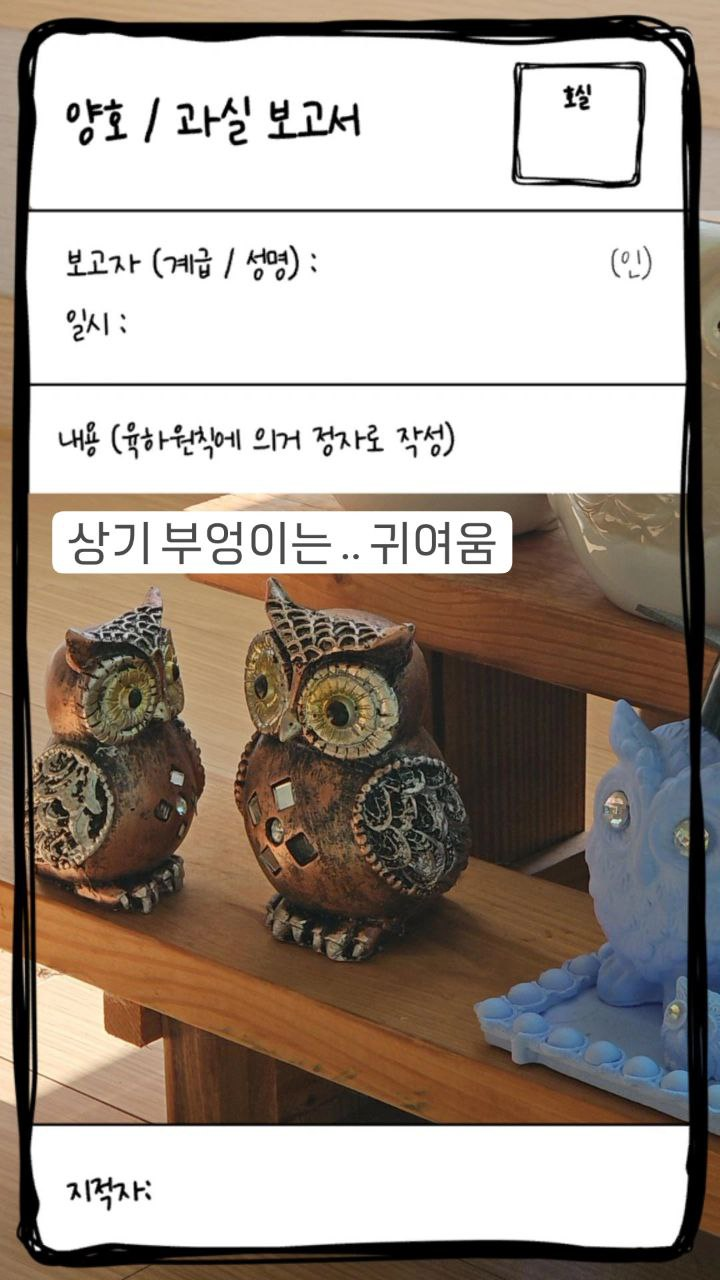 양호 / 과실 보고서
호실
보고자 (계급 / 성명) :
(인)
일시 :
내용 (육하원칙에 의거 정자로 작성)
상기 부엉이는 .. 귀여움
지적자: